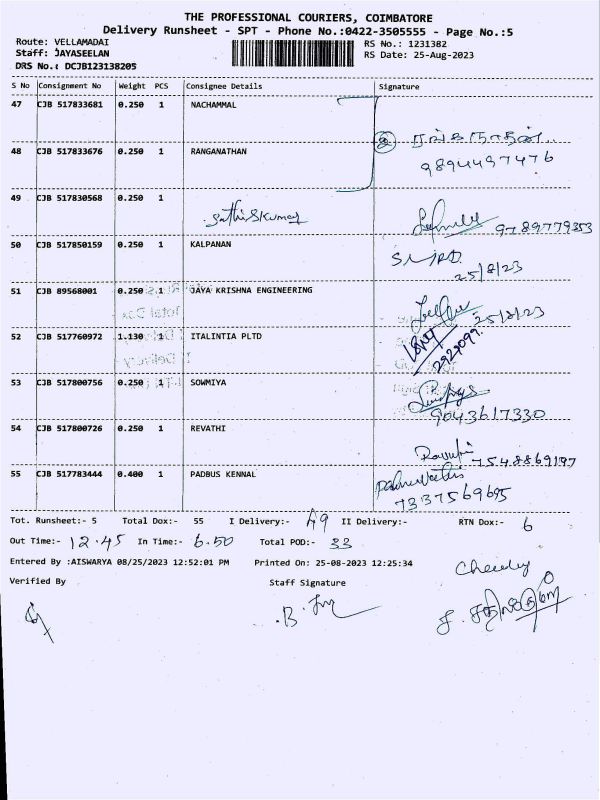 THE PROFESSIONAL COURIERS, COIMBATORE
Delivery Runsheet - SPT - Phone No.:0422-3505555 - Page No.:5
Route: VELLAMADAI
RS No.: 1231382
Staff: JAYASEELAN
RS Date: 25-Aug-2023
DRS No.: DCJB123138205
S No Consignment No Weight PCS Consignee Details Signature
47 CJB 517833681 0.250 1 NACHAMMAL
ரங்கநாதன்
48 CJB 517833676 0.250 1 RANGANATHAN
9894497476
49 CJB 517830568 0.250 1
Sathiskumar
9789779353
50 CJB 517850159 0.250 1 KALPANAN
25/8/23
51 CJB 89568001 0.250 1 JAYA KRISHNA ENGINEERING
25/8/23
52 CJB 517760972 1.130 1 ITALINTIA PLTD
2929099
53 CJB 517800756 0.250 1 SOWMIYA
9043617330
54 CJB 517800726 0.250 1 REVATHI
7548869197
55 CJB 517783444 0.400 1 PADBUS KENNAL
7337569695
Tot. Runsheet:- 5 Total Dox:- 55 I Delivery:- 49 II Delivery:- RTN Dox:- 6
Out Time:- 12.45 In Time:- 6.50 Total POD:- 33
Entered By :AISWARYA 08/25/2023 12:52:01 PM Printed On: 25-08-2023 12:25:34
Verified By Staff Signature